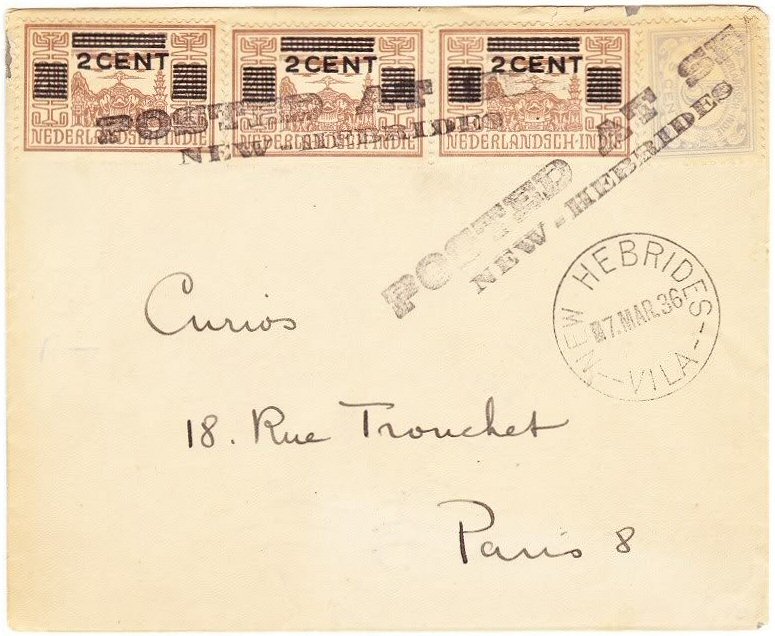 2 CENT
NEDERLANDSCH-INDIE
2 CENT
NEDERLANDSCH-INDIE
2 CENT
NEDERLANDSCH-INDIE
CENT
POSTED AT
NEW-HEBRIDES
POSTED AT SEA
NEW-HEBRIDES
NEW HEBRIDES
7.MAR.36
VILA
Curios
18. Rue Tronchet
Paris 8